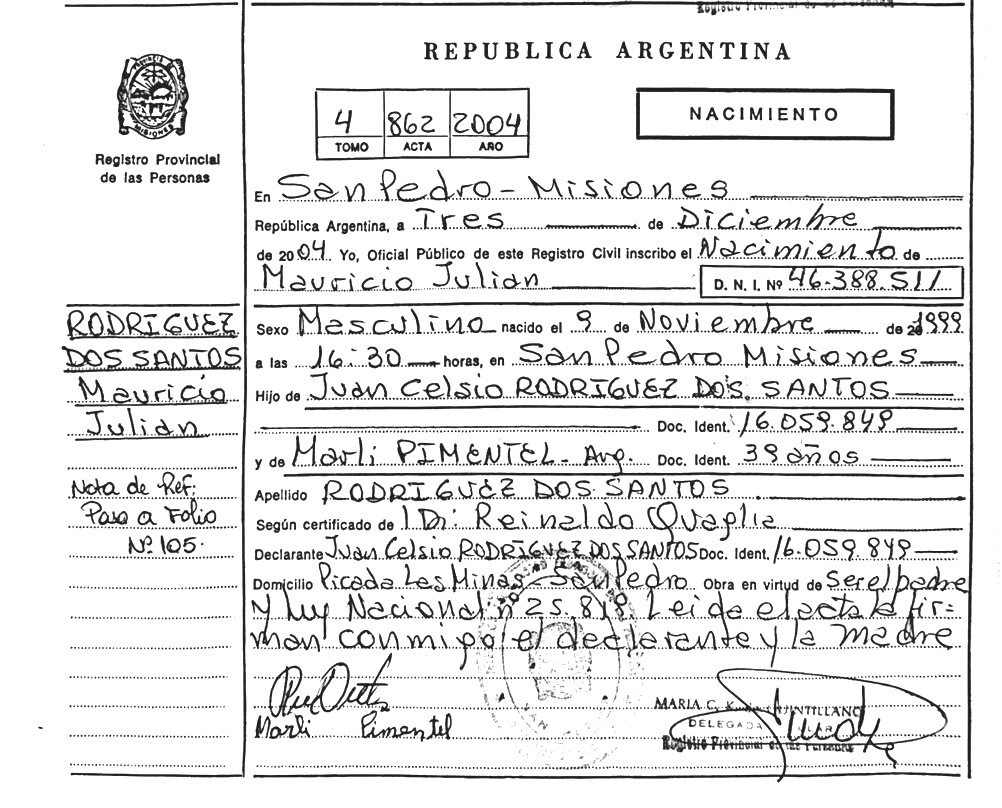 Registro Provincial de las Personas
REPUBLICA ARGENTINA
PROVINCIA DE
MISIONES
Registro Provincial
de las Personas
4 862 2004
TOMO ACTA AÑO
NACIMIENTO
En San Pedro - Misiones
República Argentina, a Tres de Diciembre
de 2004 Yo, Oficial Público de este Registro Civil inscribo el Nacimiento de
Mauricio Julian D. N. I. Nº 46.388.511
RODRIGUEZ
DOS SANTOS
Mauricio
Julian
Nota de Ref:
Pasa a Folio
Nº 105.
Sexo Masculino nacido el 9 de Noviembre de 1999
a las 16:30 horas, en San Pedro Misiones
Hijo de Juan Celsio RODRIGUEZ DOS SANTOS
Doc. Ident. 16.059.849
y de Marli PIMENTEL - Arg. Doc. Ident. 39 años
Apellido RODRIGUEZ DOS SANTOS
Según certificado de Reinaldo Quaglia
Declarante Juan Celsio RODRIGUEZ DOS SANTOS Doc. Ident. 16.059.849
Domicilio Picada Las Minas - San Pedro. Obra en virtud de Ser el padre
y Ley Nacional nº 25.818 Leida el acta la fir=
man conmigo el declarante y la madre
Marli Pimentel
MARIA
DELEGADA
Registro Provincial de las Personas